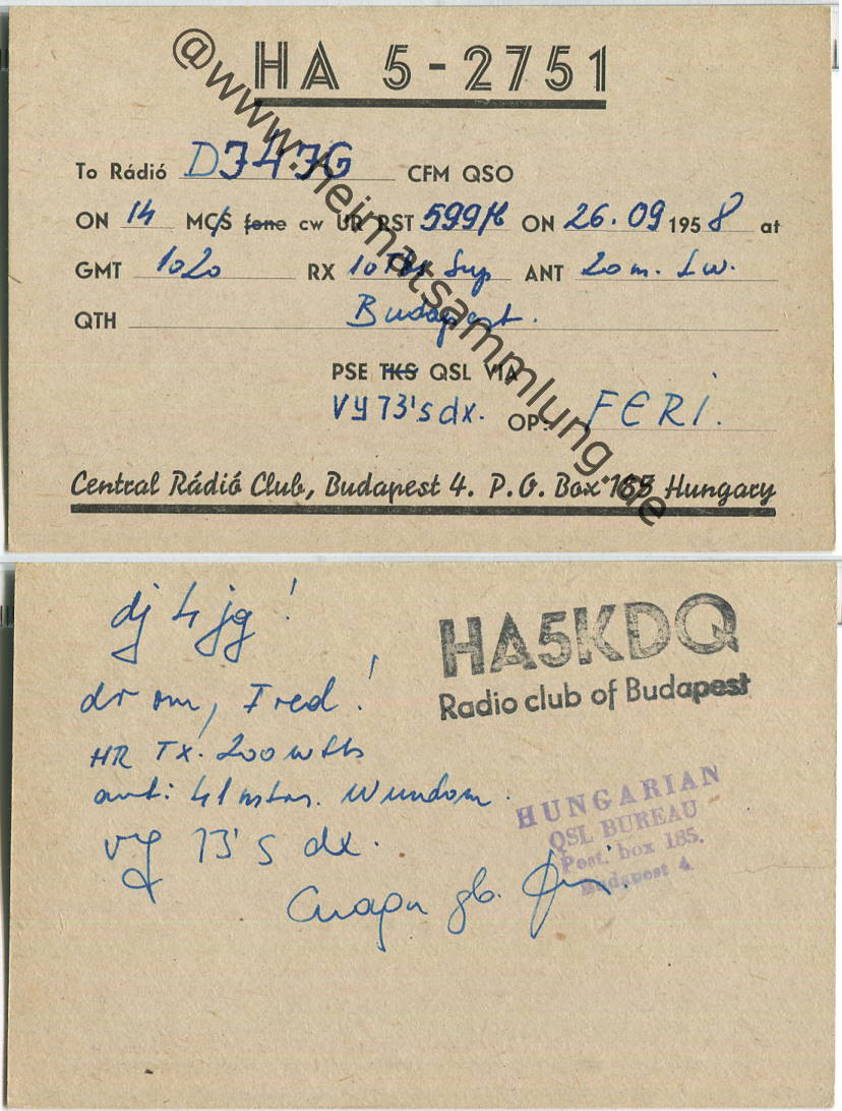 HA 5-2751
To Rádió DJ4JG CFM QSO
ON 14 MC/S fone cw UR RST 599/ ON 26.09 1958 at
GMT 1020 RX 10 Sup ANT 20m. Lw.
QTH Budapest.
PSE TKS QSL VIA
VY 73's dx. OP: FERI.
Central Rádió Club, Budapest 4. P.O. Box 185 Hungary
@www.heimatsammlung.de
dj 4 jg!
HA5KDQ
Radio club of Budapest
dr om, Fred!
HR TX. 200 wtts
ant: 41 mtrs. Wundom.
HUNGARIAN
QSL BUREAU
Post. box 185.
Budapest 4.
vy 73's dx.
gb.